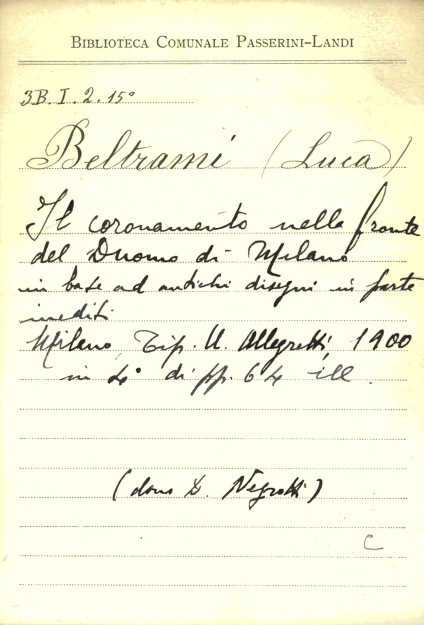 BIBLIOTECA COMUNALE PASSERINI-LANDI
3B. I. 2. 15°
Beltrami (Luca)
Il coronamento nella fronte
del Duomo di Milano
in base ad antichi disegni in parte
inediti
Milano, Tip. U. Allegretti, 1900
in 4° di pp. 64 ill.
(dono D. Negrotti)
C